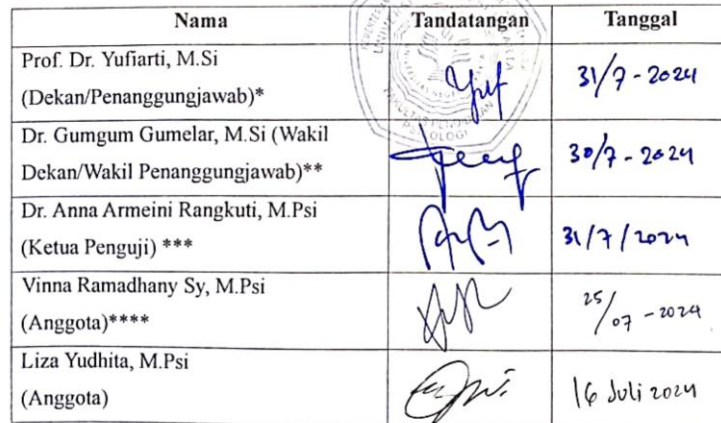 Nama Tandatangan Tanggal
Prof. Dr. Yufiarti, M.Si
(Dekan/Penanggungjawab)*
31/7 - 2024
Dr. Gumgum Gumelar, M.Si (Wakil
Dekan/Wakil Penanggungjawab)**
30/7 - 2024
Dr. Anna Armeini Rangkuti, M.Psi
(Ketua Penguji) ***
31/7/2024
Vinna Ramadhany Sy, M.Psi
(Anggota)****
25/07 - 2024
Liza Yudhita, M.Psi
(Anggota)
16 Juli 2024